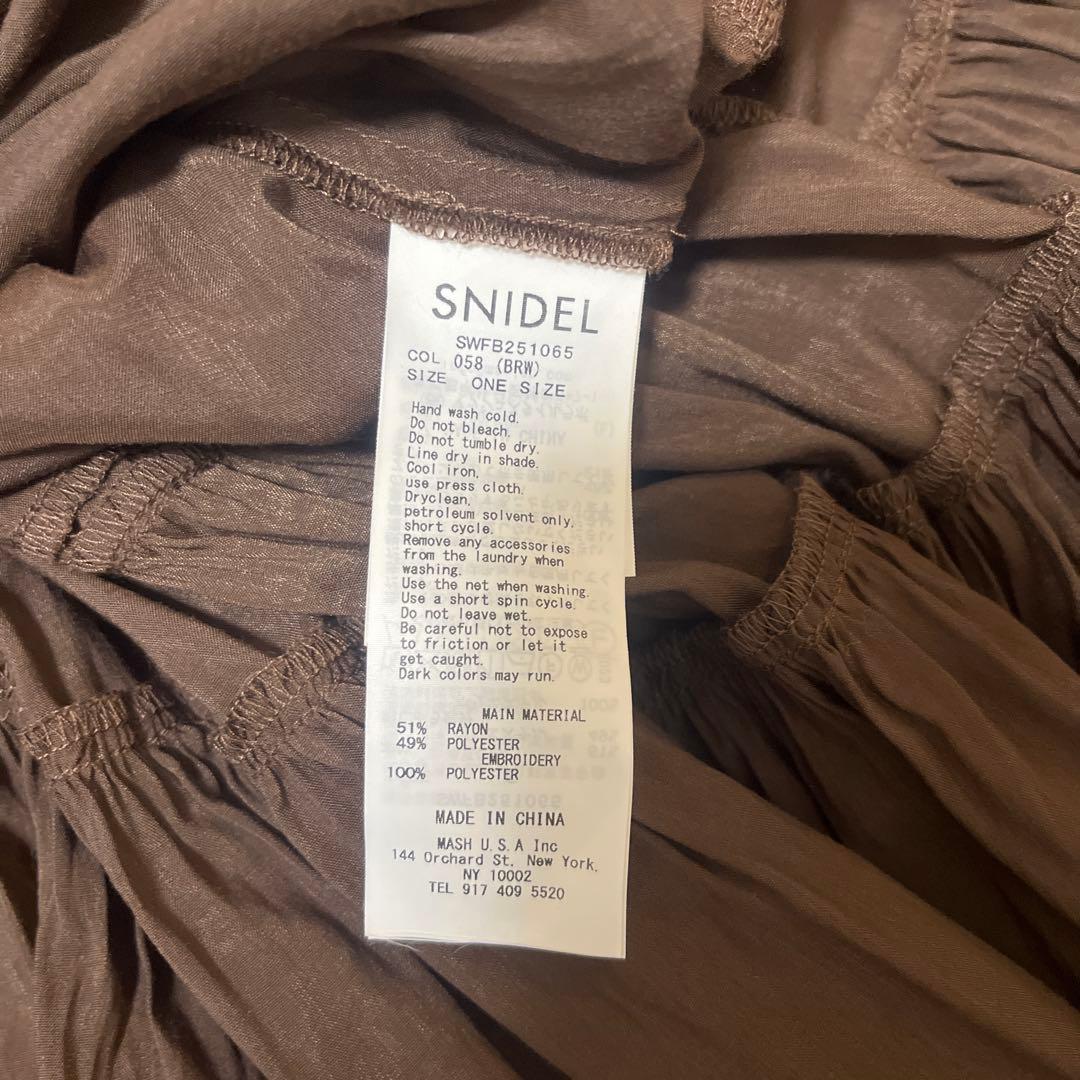 SNIDEL
SWFB251065
COL 058 (BRW)
SIZE ONE SIZE
Hand wash cold.
Do not bleach.
Do not tumble dry.
Line dry in shade.
Cool iron.
use press cloth.
Dryclean,
petroleum solvent only,
short cycle.
Remove any accessories
from the laundry when
washing.
Use the net when washing.
Use a short spin cycle.
Do not leave wet.
Be careful not to expose
to friction or let it
get caught.
Dark colors may run.
MAIN MATERIAL
51% RAYON
49% POLYESTER
EMBROIDERY
100% POLYESTER
MADE IN CHINA
MASH U.S.A Inc
144 Orchard St. New York,
NY 10002
TEL 917 409 5520